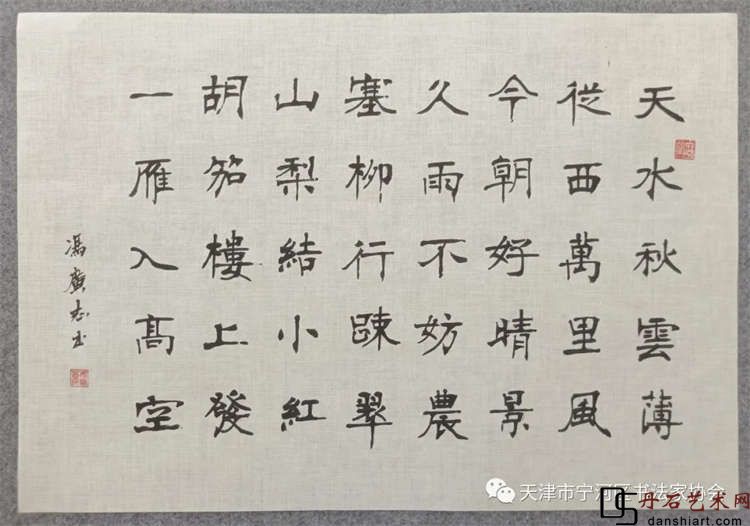 天水秋雲薄
從西萬里風
今朝好晴景
久雨不妨農
塞柳行疎翠
山梨結小紅
胡笳樓上發
一雁入高空
馮廣志书
天津市宁河区书法家协会
丹石艺术网
danshiart.com